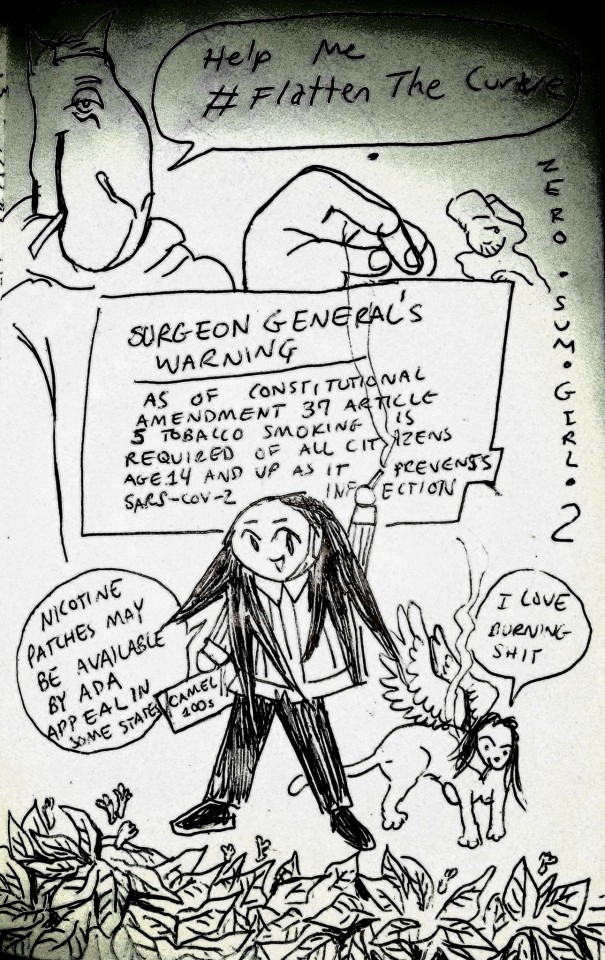 Help Me
# Flatten The Curve
ZERO • SUM • GIRL • 2
SURGEON GENERAL'S
WARNING
AS OF CONSTITUTIONAL
AMENDMENT 37 ARTICLE
5 TOBACCO SMOKING IS
REQUIRED OF ALL CITIZENS
AGE 14 AND UP AS IT PREVENTS
SARS-COV-2 INFECTION
NICOTINE
PATCHES MAY
BE AVAILABLE
BY ADA
APPEAL IN
SOME STATES
CAMEL
100s
I LOVE
BURNING
SHIT